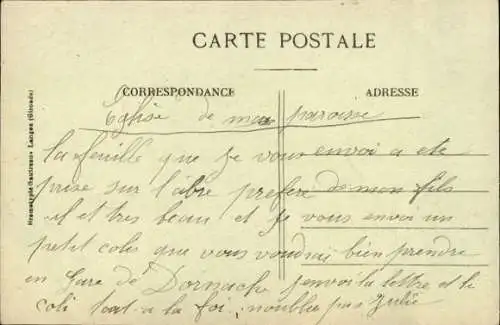 CARTE POSTALE
CORRESPONDANCE
ADRESSE
Eglise de ma paroisse
la feuille que je vous envoi a ete
prise sur l'abre prefere de mon fils
il et tres beau et je vous envoi un
petit colis que vous voudrai bien prendre
en gare de Dornach j'envoi la lettre et le
coli tout a la foi, n'oublié pas Julie
Langon (Gironde)